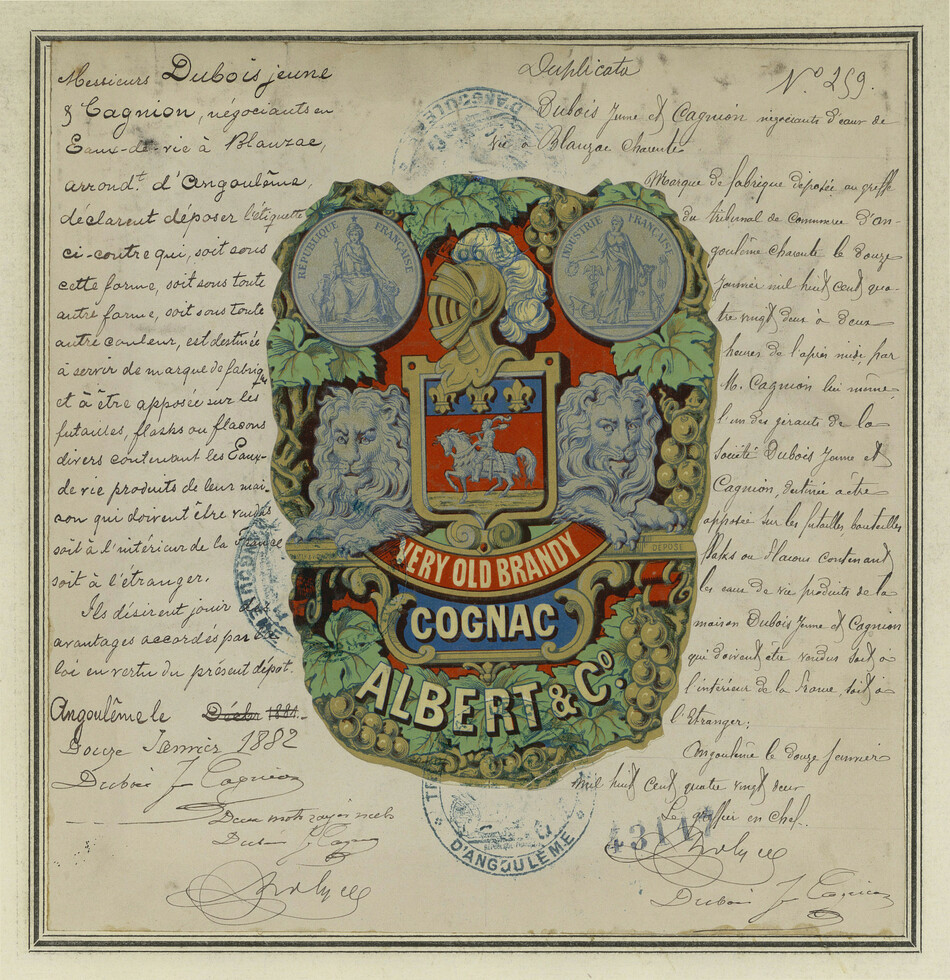 Messieurs Dubois jeune
& Cagnion, négociants en
Eaux-de-vie à Blanzac,
arrondt. d'Angoulême,
déclarent déposer l'étiquette
ci-contre qui, soit sous
cette forme, soit sous toute
autre forme, soit sous toute
autre couleur, est destinée
à servir de marque de fabriq
et à être apposée sur les
futailles, flasks ou flacons
divers contenant les Eaux-
de vie produits de leur mai-
son qui doivent être vendus
soit à l'intérieur de la France
soit à l'étranger.
Ils désirent jouir des
avantages accordés par la
loi en vertu du présent dépôt.
Angoulême le Décbr 1881.
Douze Janvier 1882
Dubois Je Cagnion
Deux mots rayés nuls
Dubois Je Cagnion
RÉPUBLIQUE FRANÇAISE
INDUSTRIE FRANÇAISE
DÉPOSÉ
VERY OLD BRANDY
COGNAC
ALBERT & Co.
D'ANGOULÊME
D'ANGOULÊME
Duplicata
No 259.
Dubois Jeune et Cagnion négociants d'eaux de
vie à Blanzac Charente
Marque de fabrique déposée au greffe
du tribunal de Commerce d'An-
goulême Charente le Douze
Janvier mil huit cent qua-
tre vingt deux à deux
heures de l'après midi par
M. Cagnion lui même
l'un des gérants de la
Société Dubois Jeune et
Cagnion, destinée à être
apposée sur les futailles, bouteilles
flasks ou flacons contenant
les eaux de vie produits de la
maison Dubois Jeune et Cagnion
qui doivent être vendus soit à
l'intérieur de la France soit à
l'Etranger;
Angoulême le douze Janvier
mil huit cent quatre vingt deux
Le greffier en chef
Dubois Je Cagnion